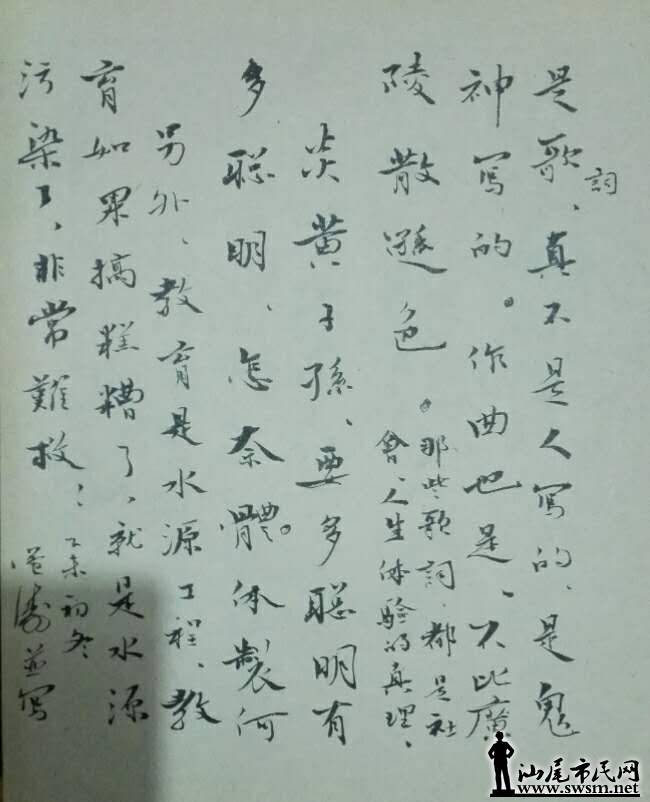 是歌詞、真不是人写的、是鬼
神写的。作曲也是、不比廣
陵散遜色。那些歌詞、都是社
會、人生体验的真理、
炎黄子孫、要多聪明有
多聪明、怎奈體。体製何
另外、教育是水源工程、教
育如果搞糕糟了、就是水源
污染了、非常難救;
乙未初冬
並写
汕尾市民网
www.swsm.net